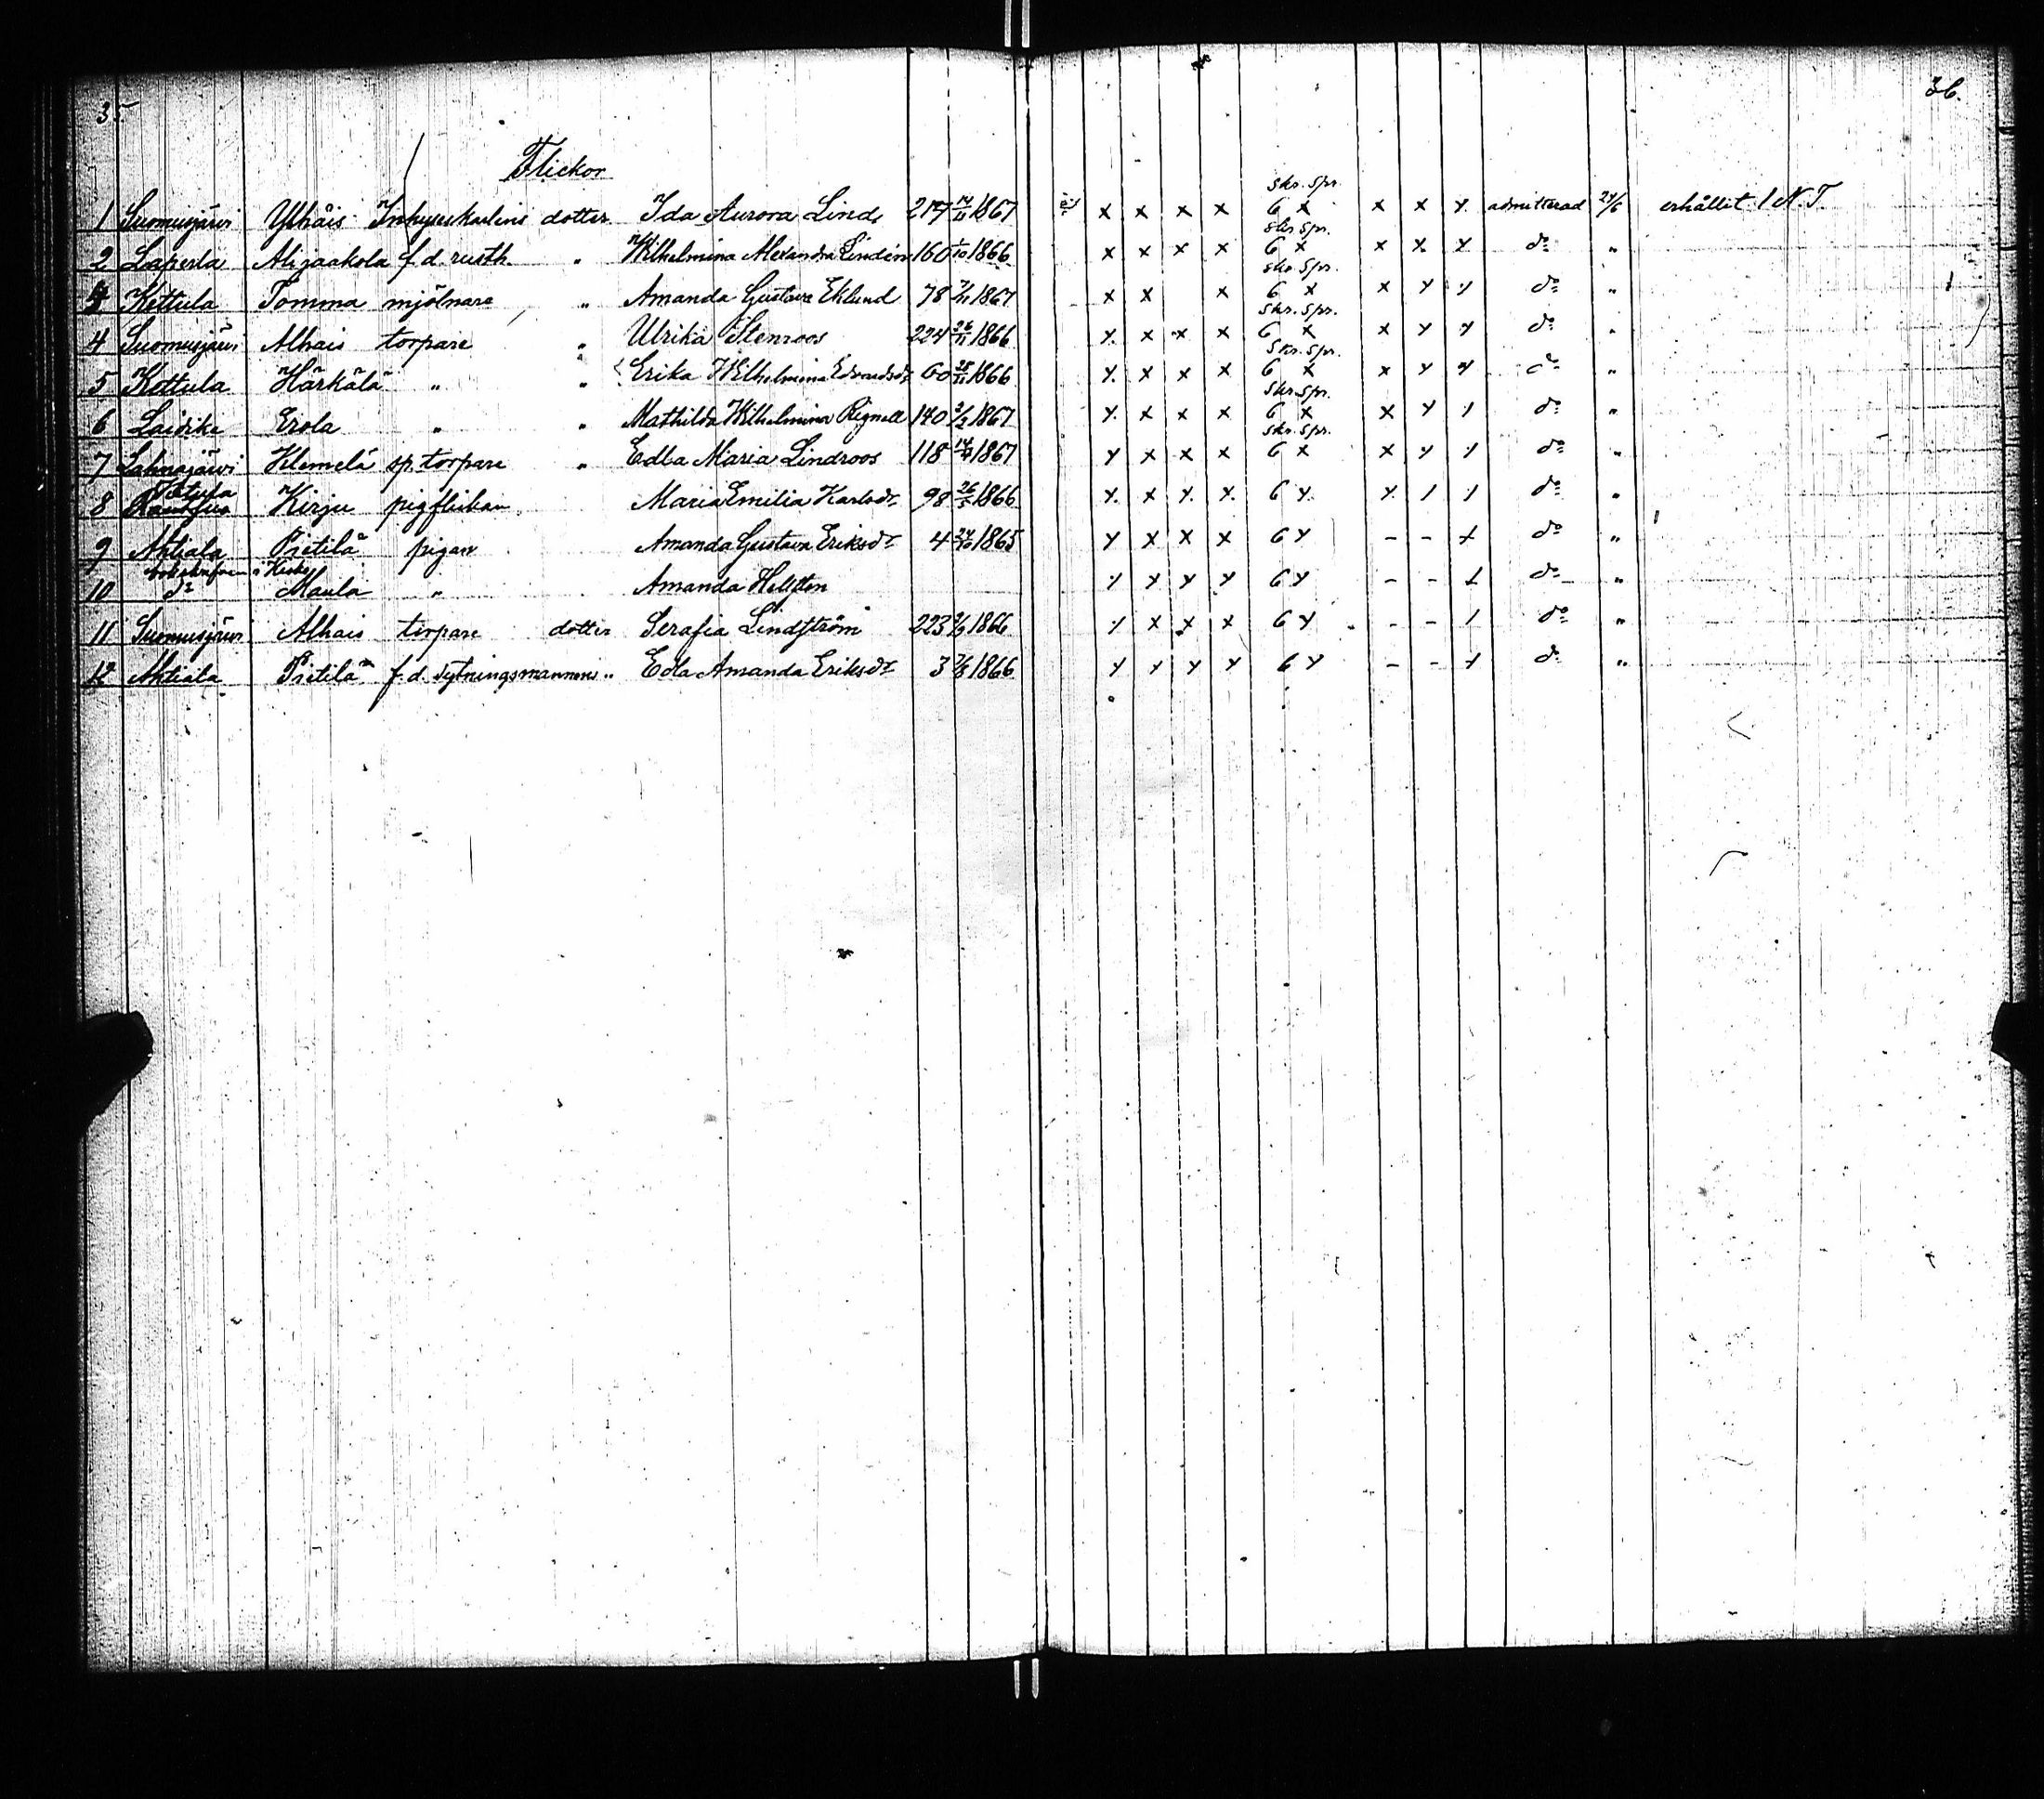 35
36.
Flickor
1 Suomusjärvi Ylhäis Inhyseskarlens dotter Ida Aurora Lind 217 14/11 1867 x x x x skr. spr. 6 x x x x admitterad 24/6 erhållit 1 N. T.
2 Laperla Alijaakola f. d. rusth. " Wilhelmina Alexandra Lindén 160 1/10 1866 x x x x skr. spr. 6 x x x x do "
3 Kettula Tomma mjölnare " Amanda Gustava Eklund 78 7/11 1867 x x x skr. spr. 6 x x x x do " 1
4 Suomusjärvi Alhais torpare " Ulrika Stenroos 224 26/11 1866 x x x x skr. spr. 6 x x x x do "
5 Kettula Härkälä " " Erika Wilhelmina Edvardsdr 60 1866 x x x x skr. spr. 6 x x x x do "
6 Laidike Erola " " Mathilda Wilhelmina Rignell 140 2/2 1867 x x x x skr. spr. 6 x x x x do "
7 Lahnajärvi Klemelä sp. torpare " Edla Maria Lindroos 118 1867 x x x x skr. spr. 6 x x x x do "
8 Kirju pigflickan Maria Emilia Karlsdr 98 1866 x x x x 6 x x x x do "
9 Ahtiala Pietilä pigan Amanda Gustava Eriksdr 4 24/10 1865 x x x x 6 x - - x do "
i Kisko
10 do Maula " Amanda Hellsten x x x x 6 x - - x do "
11 Suomusjärvi Alhais torpare dotter Serafia Lindström 223 2/9 1866 x x x x 6 x - - x do "
12 Ahtiala Pietilä f. d. Sytningsmannens " Edla Amanda Eriksdr 3 7/8 1866 x x x x 6 x - - x do "